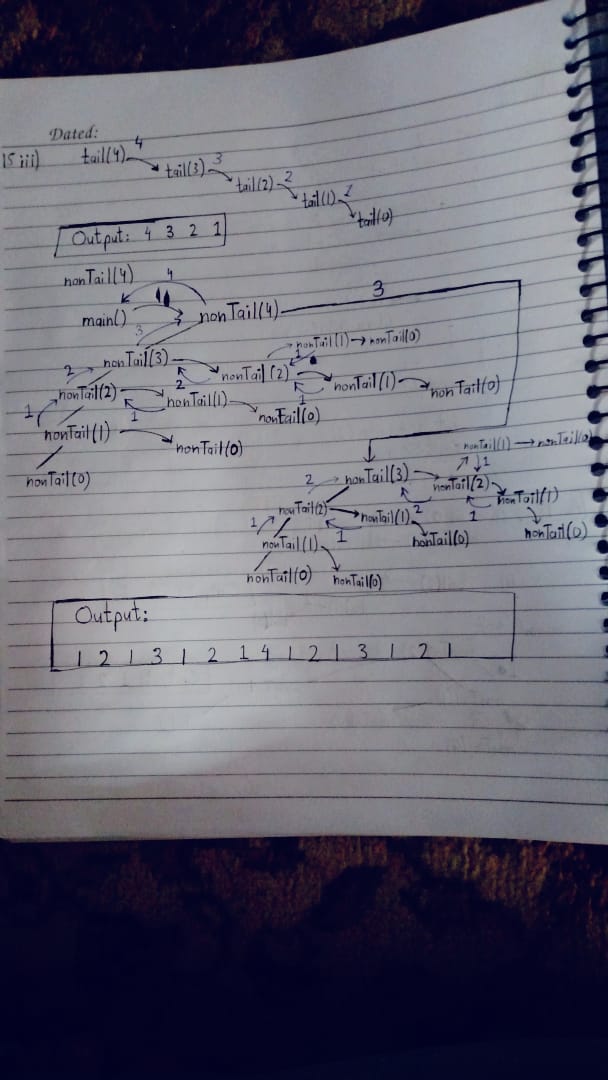 Dated:
15 iii) tail(4) 4 tail(3) 3 tail(2) 2 tail(1) 1 tail(0)
Output: 4 3 2 1
nonTail(4) 4
main() nonTail(4) 3
3
nonTail(1) → nonTail(0)
2 nonTail(3) nonTail(2) 1 nonTail(1) nonTail(0)
1 nonTail(2) 2 nonTail(1) nonTail(0) 1
nonTail(1) 1 nonTail(0)
nonTail(0)
nonTail(1) → nonTail(0)
2 nonTail(3) nonTail(2) 1 nonTail(1)
1 nonTail(2) nonTail(1) 2 1 nonTail(0)
nonTail(1) 1 nonTail(0)
nonTail(0) nonTail(0)
Output:
1 2 1 3 1 2 1 4 1 2 1 3 1 2 1